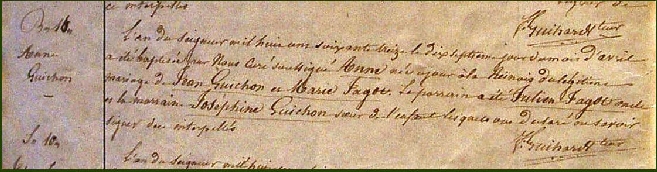 ce interpellés
F. Guihard Rteur
Bme 16e
Anne
Guichon
L'an du Seigneur mil huit cent soixante treize le dix septieme jour du mois d'avril
a été baptisée par Nous Curé soussigné Anne née ce jour à la Hernais du légitime
mariage de Jean Guichon et Marie Fagot. Le parrain a été Julien Fagot oncle
et la marraine Josephine Guichon sœur de l'enfant lesquels ont déclaré ne savoir
signer de ce interpellés
F. Guihard Rteur
L'an du Seigneur mil huit